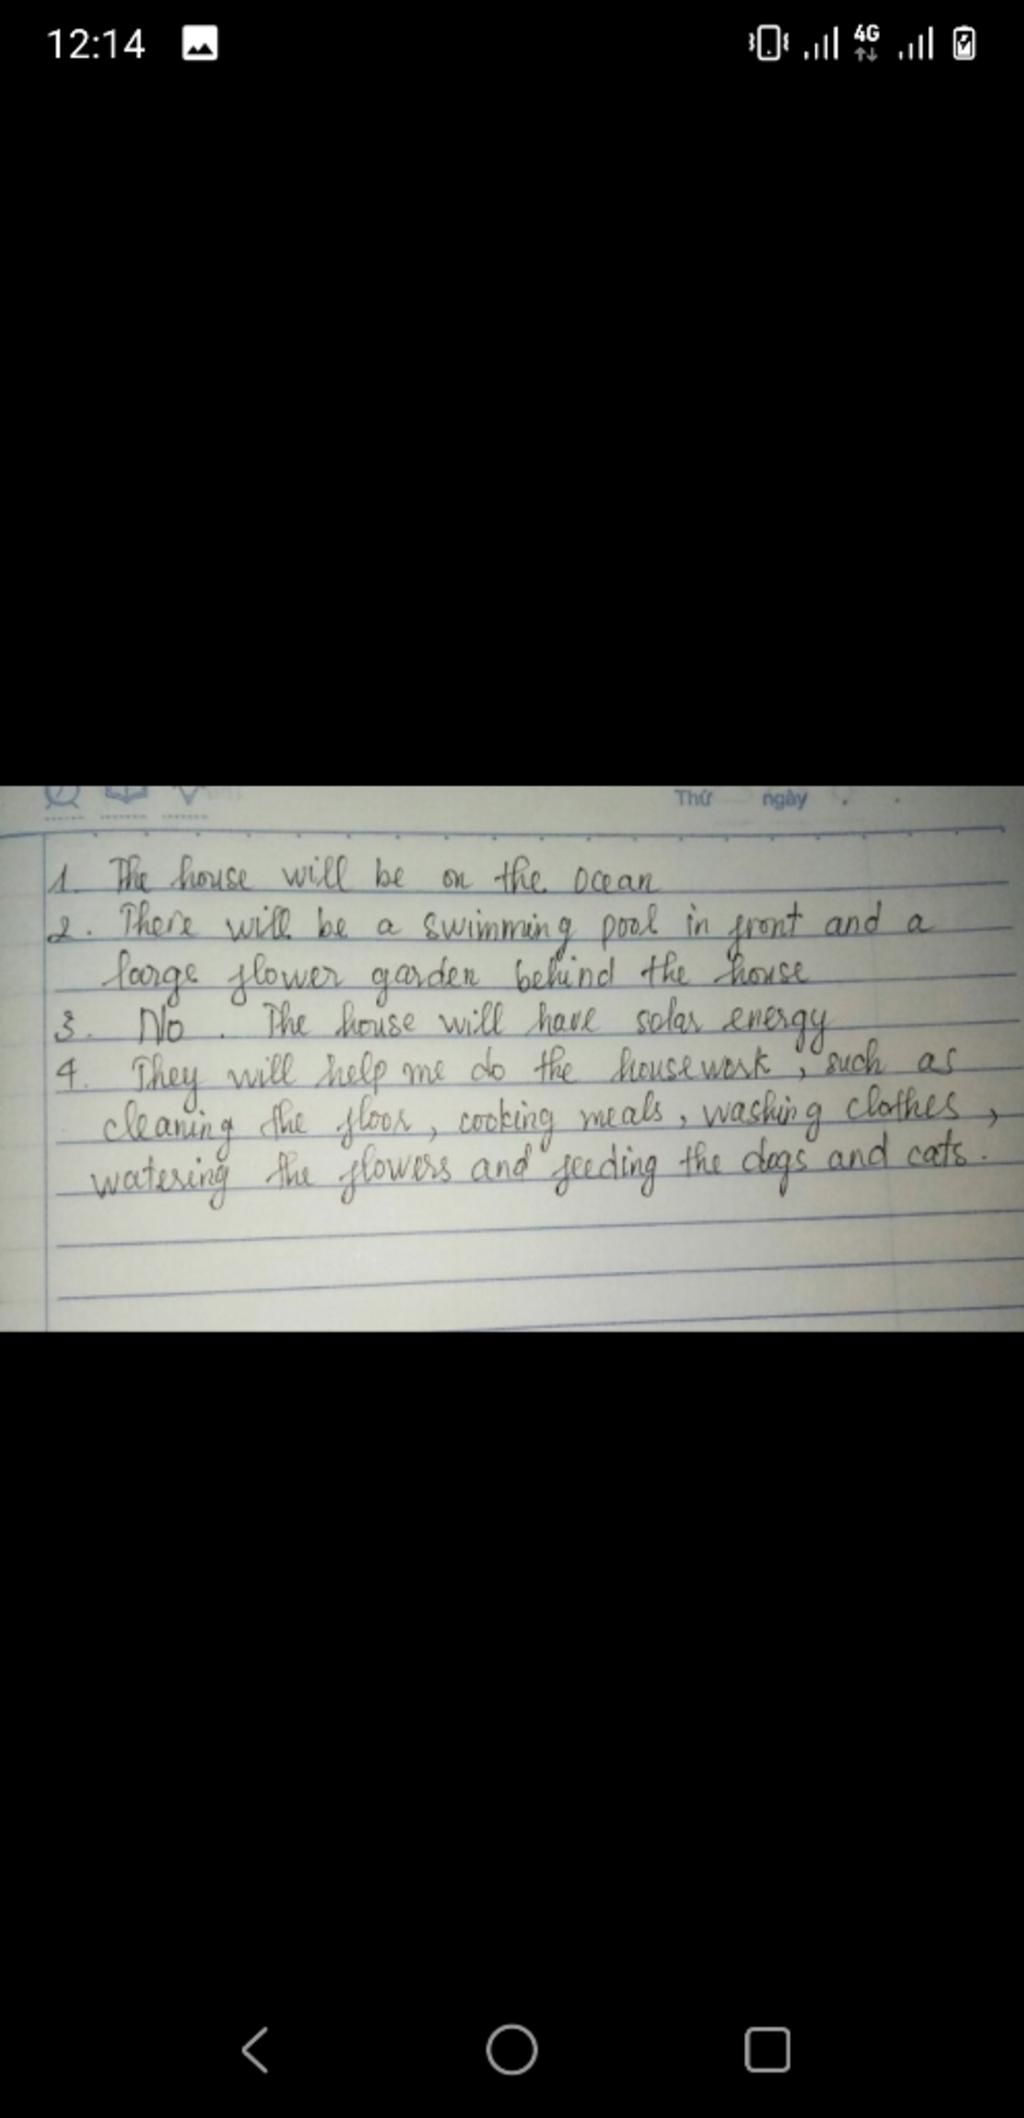 12:14
4G
Thứ ngày
1. The house will be on the ocean
2. There will be a swimming pool in front and a
large flower garden behind the house
3. No. The house will have solar energy
4. They will help me do the housework, such as
cleaning the floor, cooking meals, washing clothes,
watering the flowers and feeding the dogs and cats.